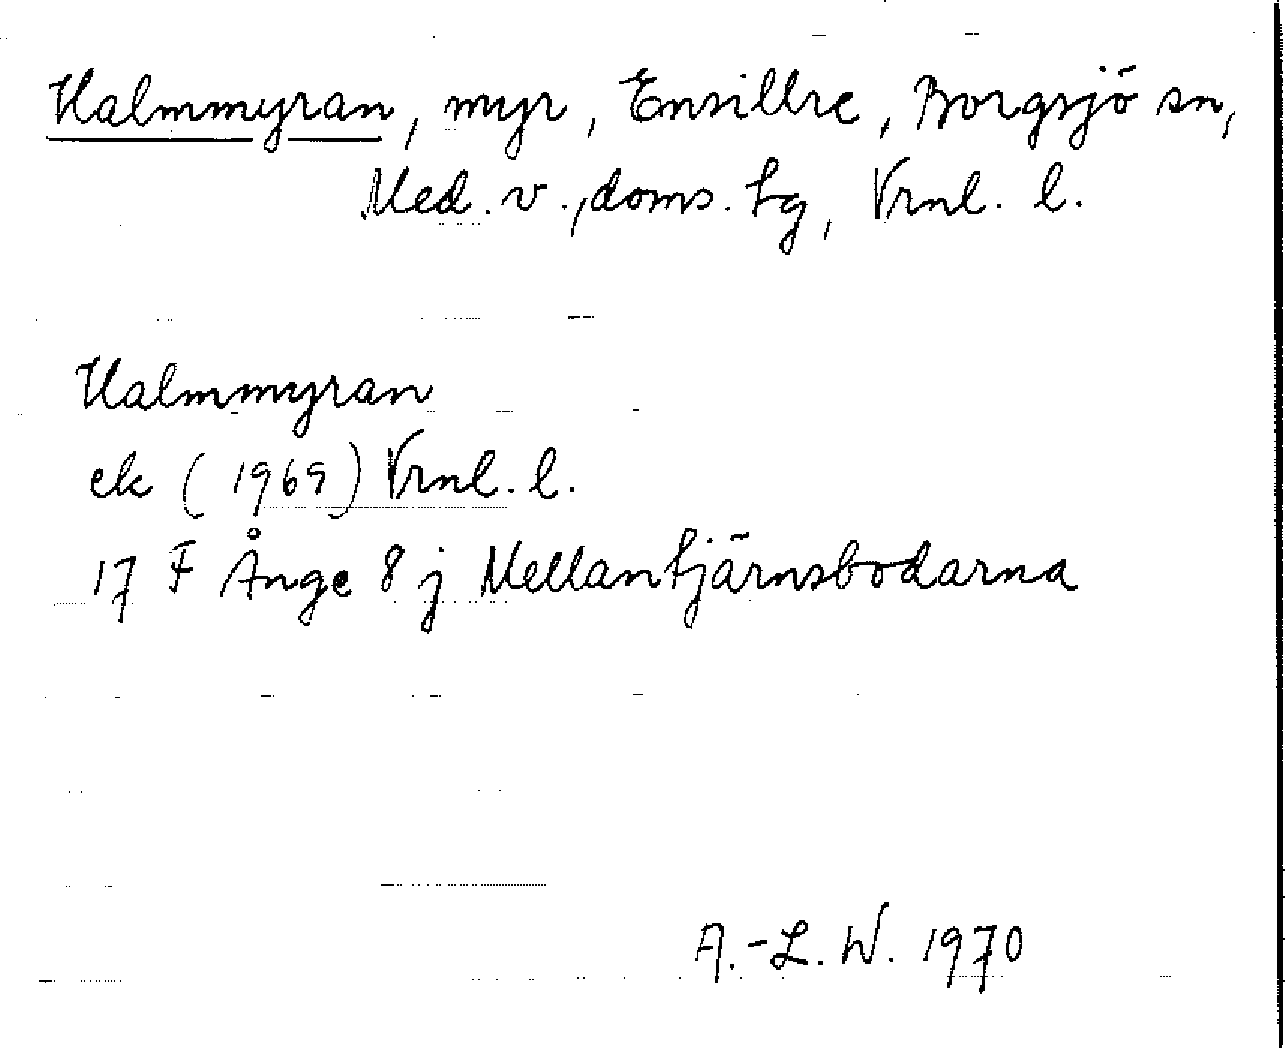 Halmmyran, myr, Ensillre, Borgsjö sn,
Med. v., doms. tg, Vrnl. l.
Halmmyran
ek (1969) Vrnl. l.
17 F Ånge 8 j Mellantjärnsbodarna
A.-L. W. 1970